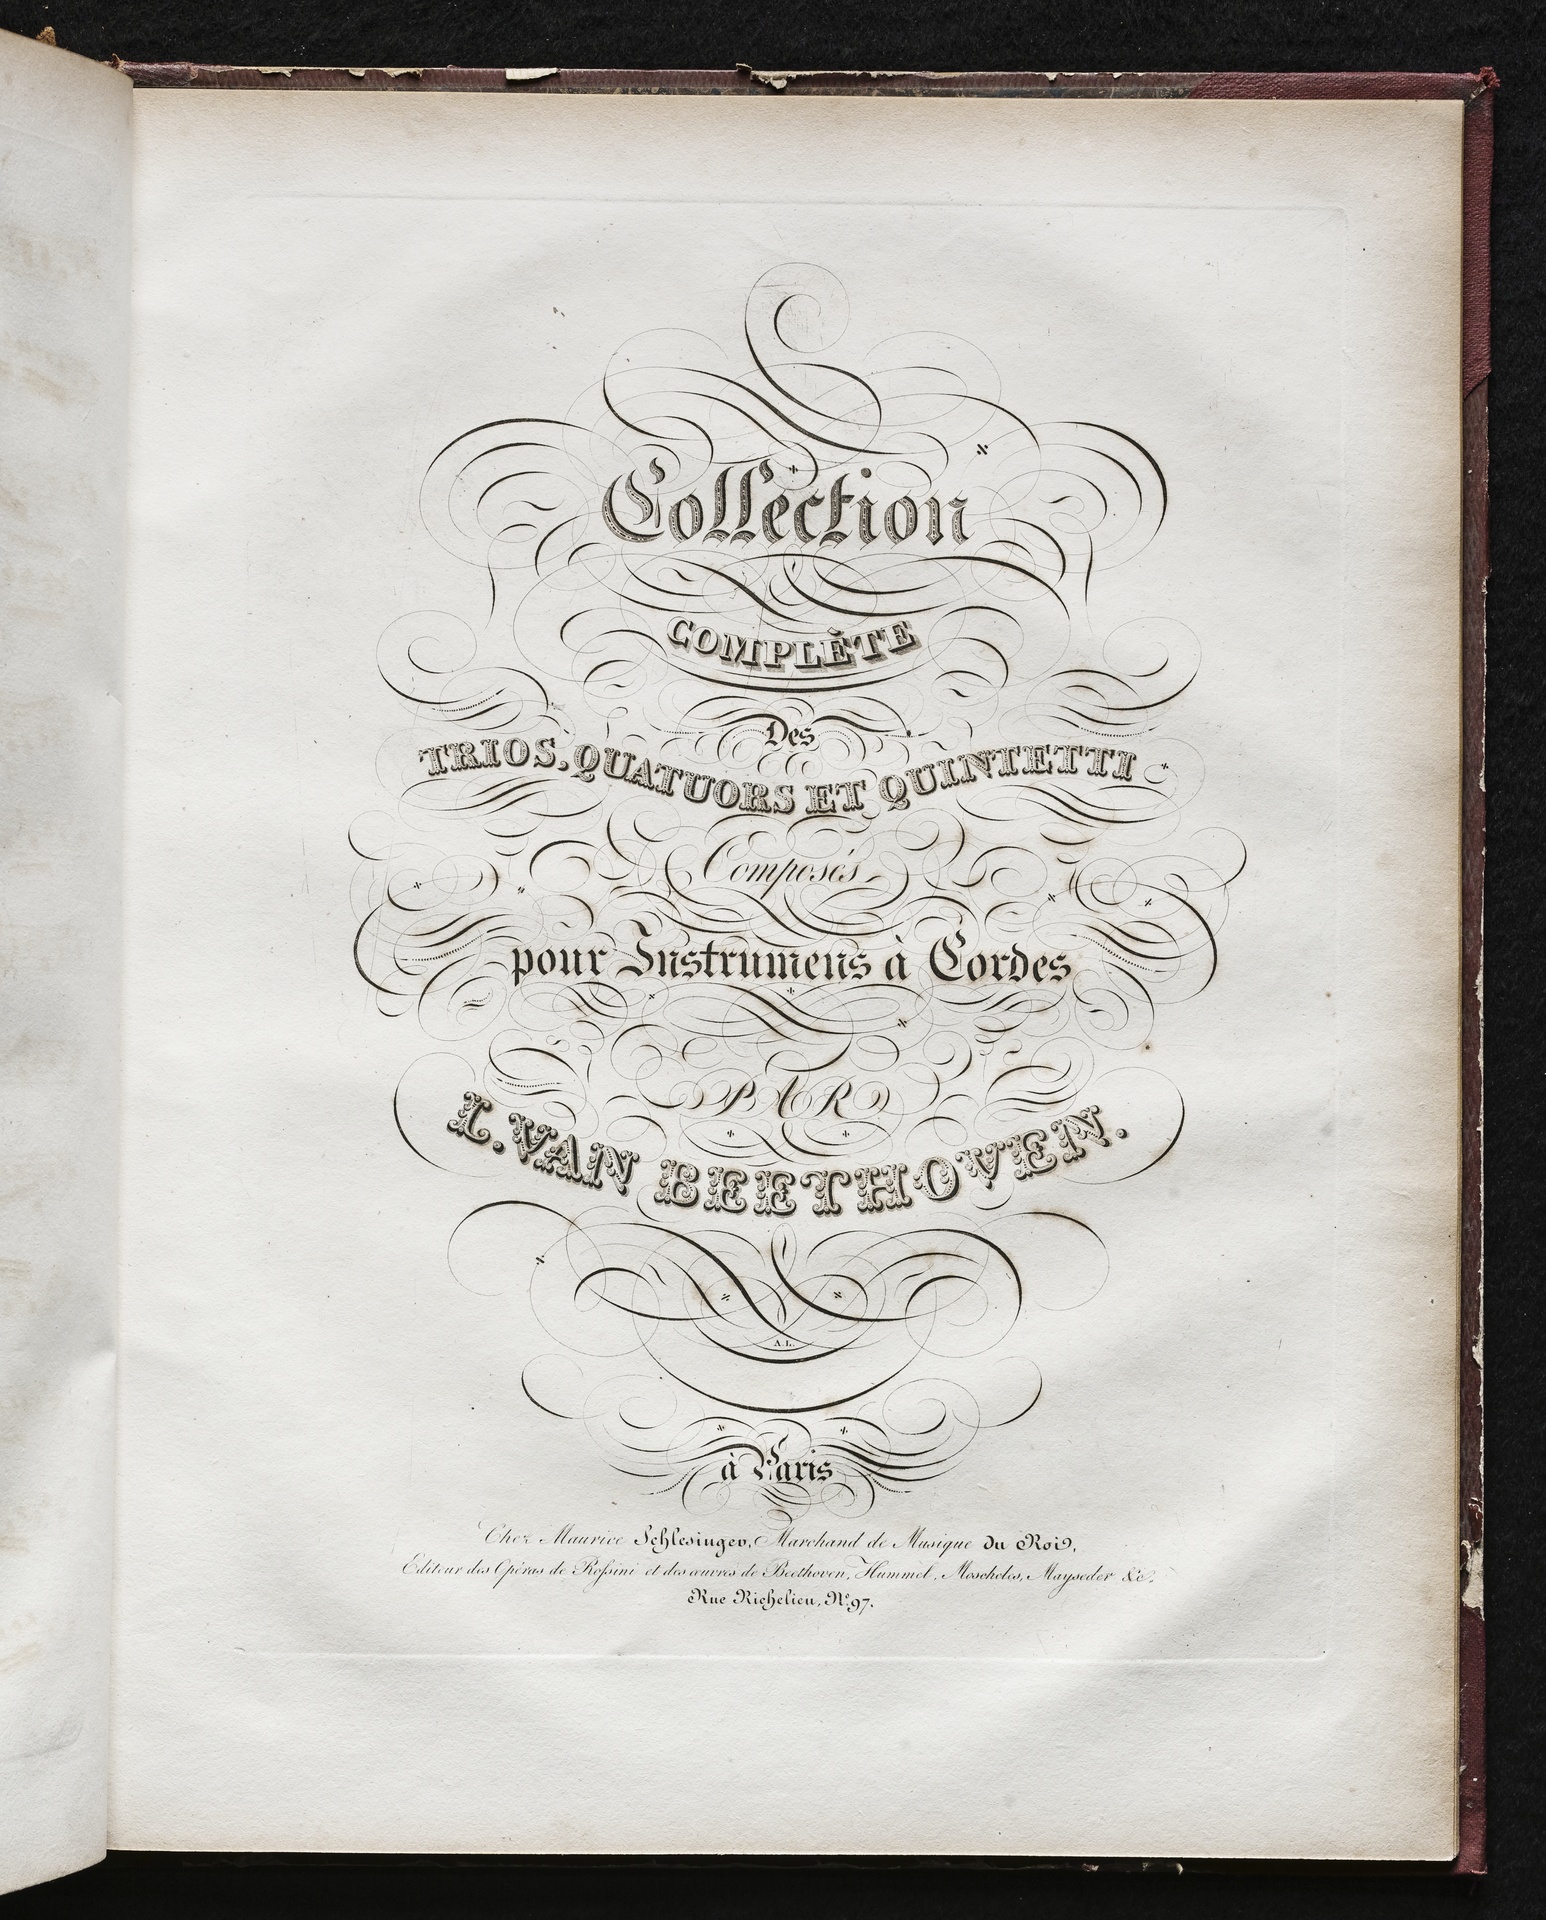 Collection
COMPLÈTE
Des
TRIOS, QUATUORS ET QUINTETTI
Composés
pour Instrumens à Cordes
PAR
L. VAN BEETHOVEN.
A.L.
à Paris
Chez Maurice Schlesinger, Marchand de Musique du Roi,
Editeur des Opéras de Rossini et des œuvres de Beethoven, Hummel, Moscheles, Mayseder &c.
Rue Richelieu, No. 97.